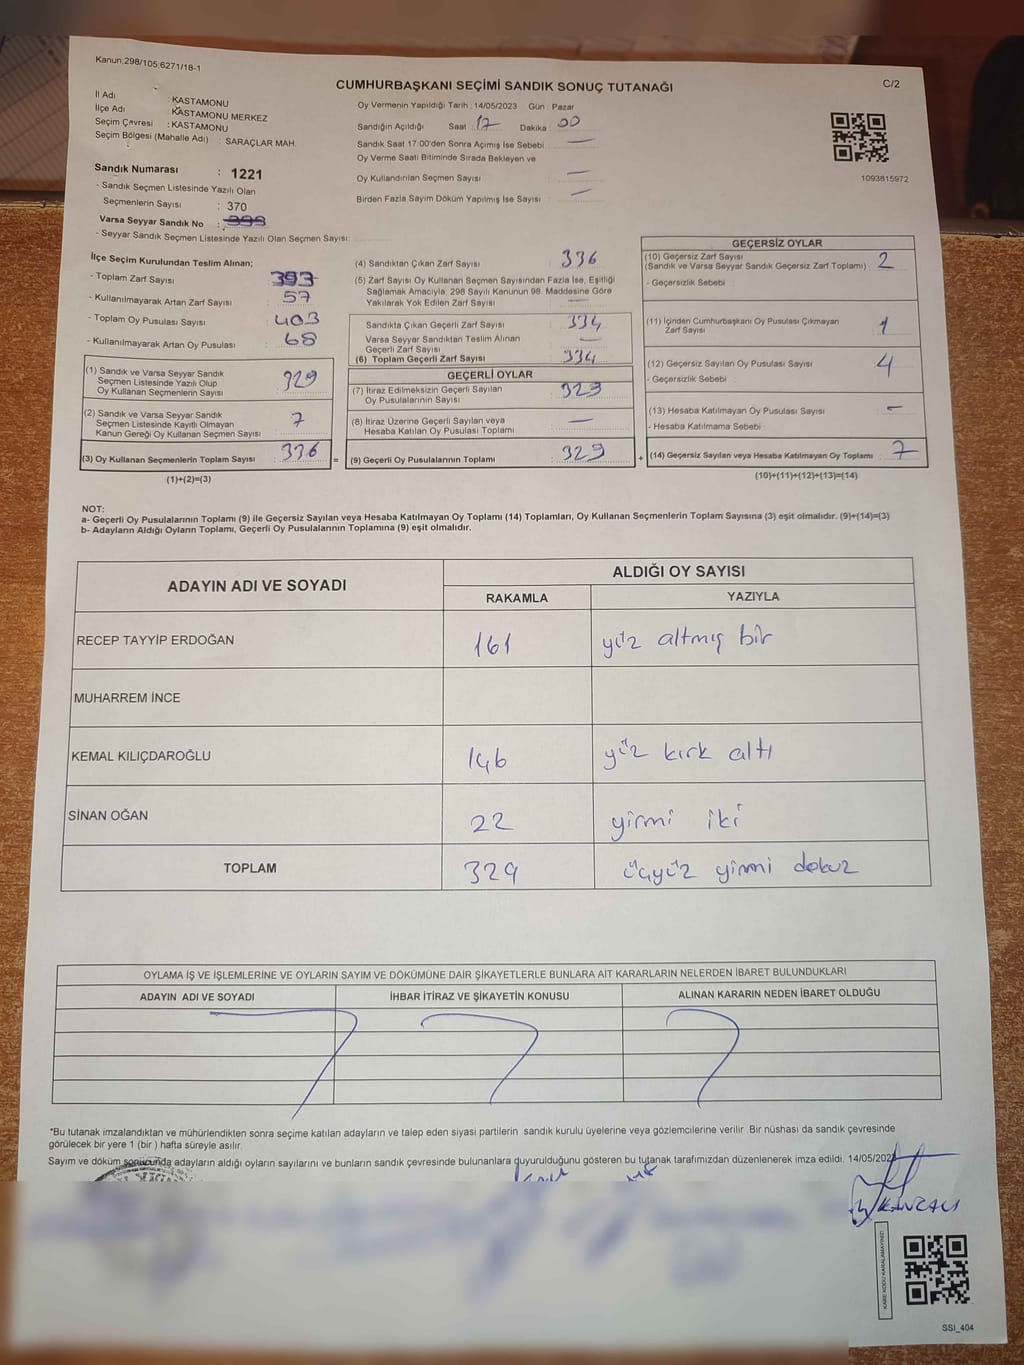 Kanun:298/105;6271/18-1
CUMHURBAŞKANI SEÇİMİ SANDIK SONUÇ TUTANAĞI
C/2
İl Adı : KASTAMONU
İlçe Adı : KASTAMONU MERKEZ
Seçim Çevresi : KASTAMONU
Seçim Bölgesi (Mahalle Adı) : SARAÇLAR MAH.
Oy Vermenin Yapıldığı Tarih : 14/05/2023 Gün : Pazar
Sandığın Açıldığı Saat 17 Dakika 00
Sandık Saat 17:00'den Sonra Açımış İse Sebebi : —
Oy Verme Saati Bitiminde Sırada Bekleyen ve
Oy Kullandırılan Seçmen Sayısı : —
Birden Fazla Sayım Döküm Yapılmış İse Sayısı : —
1093815972
Sandık Numarası : 1221
- Sandık Seçmen Listesinde Yazılı Olan
Seçmenlerin Sayısı : 370
Varsa Seyyar Sandık No :
- Seyyar Sandık Seçmen Listesinde Yazılı Olan Seçmen Sayısı:
İlçe Seçim Kurulundan Teslim Alınan;
- Toplam Zarf Sayısı : 393
- Kullanılmayarak Artan Zarf Sayısı : 57
- Toplam Oy Pusulası Sayısı : 403
- Kullanılmayarak Artan Oy Pusulası : 68
(1) Sandık ve Varsa Seyyar Sandık
Seçmen Listesinde Yazılı Olup
Oy Kullanan Seçmenlerin Sayısı : 329
(2) Sandık ve Varsa Seyyar Sandık
Seçmen Listesinde Kayıtlı Olmayan
Kanun Gereği Oy Kullanan Seçmen Sayısı : 7
(3) Oy Kullanan Seçmenlerin Toplam Sayısı : 336
(1)+(2)=(3)
(4) Sandıktan Çıkan Zarf Sayısı : 336
(5) Zarf Sayısı Oy Kullanan Seçmen Sayısından Fazla İse, Eşitliği
Sağlamak Amacıyla; 298 Sayılı Kanunun 98. Maddesine Göre
Yakılarak Yok Edilen Zarf Sayısı : —
Sandıkta Çıkan Geçerli Zarf Sayısı : 334
Varsa Seyyar Sandıktan Teslim Alınan
Geçerli Zarf Sayısı : —
(6) Toplam Geçerli Zarf Sayısı : 334
GEÇERLİ OYLAR
(7) İtiraz Edilmeksizin Geçerli Sayılan
Oy Pusulalarının Sayısı : 329
(8) İtiraz Üzerine Geçerli Sayılan veya
Hesaba Katılan Oy Pusulası Toplamı : —
= (9) Geçerli Oy Pusulalarının Toplamı : 329
GEÇERSİZ OYLAR
(10) Geçersiz Zarf Sayısı
(Sandık ve Varsa Seyyar Sandık Geçersiz Zarf Toplamı) : 2
- Geçersizlik Sebebi :
(11) İçinden Cumhurbaşkanı Oy Pusulası Çıkmayan
Zarf Sayısı : 1
(12) Geçersiz Sayılan Oy Pusulası Sayısı : 4
- Geçersizlik Sebebi :
(13) Hesaba Katılmayan Oy Pusulası Sayısı : —
- Hesaba Katılmama Sebebi :
+ (14) Geçersiz Sayılan veya Hesaba Katılmayan Oy Toplamı : 7
(10)+(11)+(12)+(13)=(14)
NOT:
a- Geçerli Oy Pusulalarının Toplamı (9) ile Geçersiz Sayılan veya Hesaba Katılmayan Oy Toplamı (14) Toplamları, Oy Kullanan Seçmenlerin Toplam Sayısına (3) eşit olmalıdır. (9)+(14)=(3)
b- Adayların Aldığı Oyların Toplamı, Geçerli Oy Pusulalarının Toplamına (9) eşit olmalıdır.
ADAYIN ADI VE SOYADI ALDIĞI OY SAYISI
RAKAMLA YAZIYLA
RECEP TAYYİP ERDOĞAN 161 yüz altmış bir
MUHARREM İNCE
KEMAL KILIÇDAROĞLU 146 yüz kırk altı
SİNAN OĞAN 22 yirmi iki
TOPLAM 329 üçyüz yirmi dokuz
OYLAMA İŞ VE İŞLEMLERİNE VE OYLARIN SAYIM VE DÖKÜMÜNE DAİR ŞİKAYETLERLE BUNLARA AİT KARARLARIN NELERDEN İBARET BULUNDUKLARI
ADAYIN ADI VE SOYADI İHBAR İTİRAZ VE ŞİKAYETİN KONUSU ALINAN KARARIN NEDEN İBARET OLDUĞU
*Bu tutanak imzalandıktan ve mühürlendikten sonra seçime katılan adayların ve talep eden siyasi partilerin sandık kurulu üyelerine veya gözlemcilerine verilir .Bir nüshası da sandık çevresinde
görülecek bir yere 1 (bir ) hafta süreyle asılır.
Sayım ve döküm sonucunda adayların aldığı oyların sayılarını ve bunların sandık çevresinde bulunanlara duyurulduğunu gösteren bu tutanak tarafımızdan düzenlenerek imza edildi. 14/05/2023
KARE KODU KARALAMAYINIZ!
SSI_404